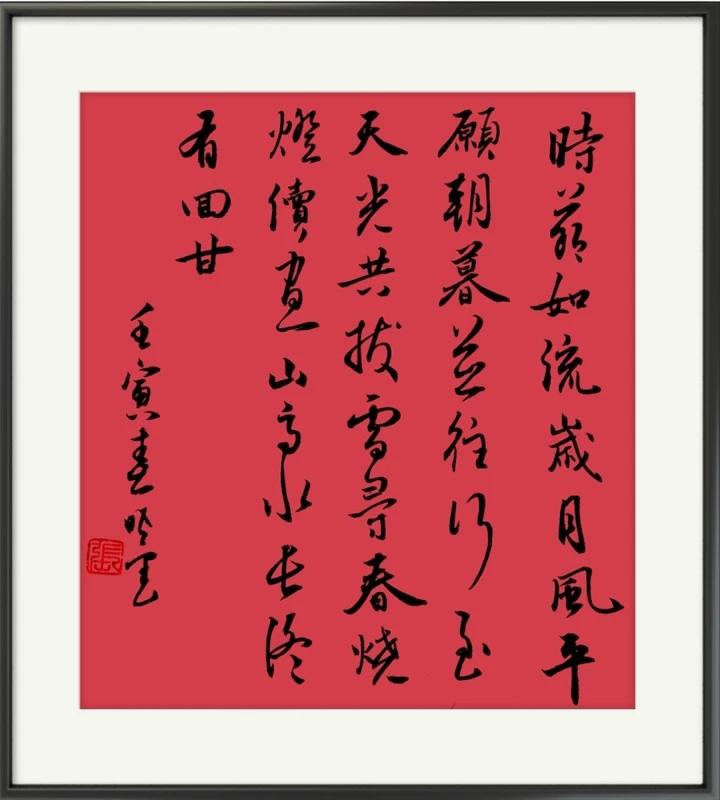 時節如流歲月風平
願朝暮並往行至
天光共拨雪尋春燒
燈續晝山高水長終
有回甘
壬寅春
張